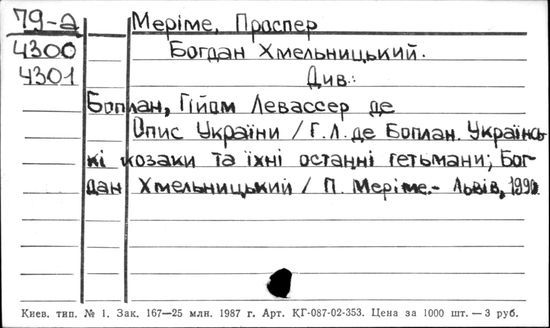 79-а Меріме, Проспер
4300 Богдан Хмельницький.
4301 Див.:
Боплан, Гійом Левассер де
Опис України / Г.Л. де Боплан. Українсь-
кі козаки та їхні останні гетьмани; Бог-
дан Хмельницький / П. Меріме.- Львів, 1990.
Киев. тип. № 1. Зак. 167—25 млн. 1987 г. Арт. КГ-087-02-353. Цена за 1000 шт. — 3 руб.